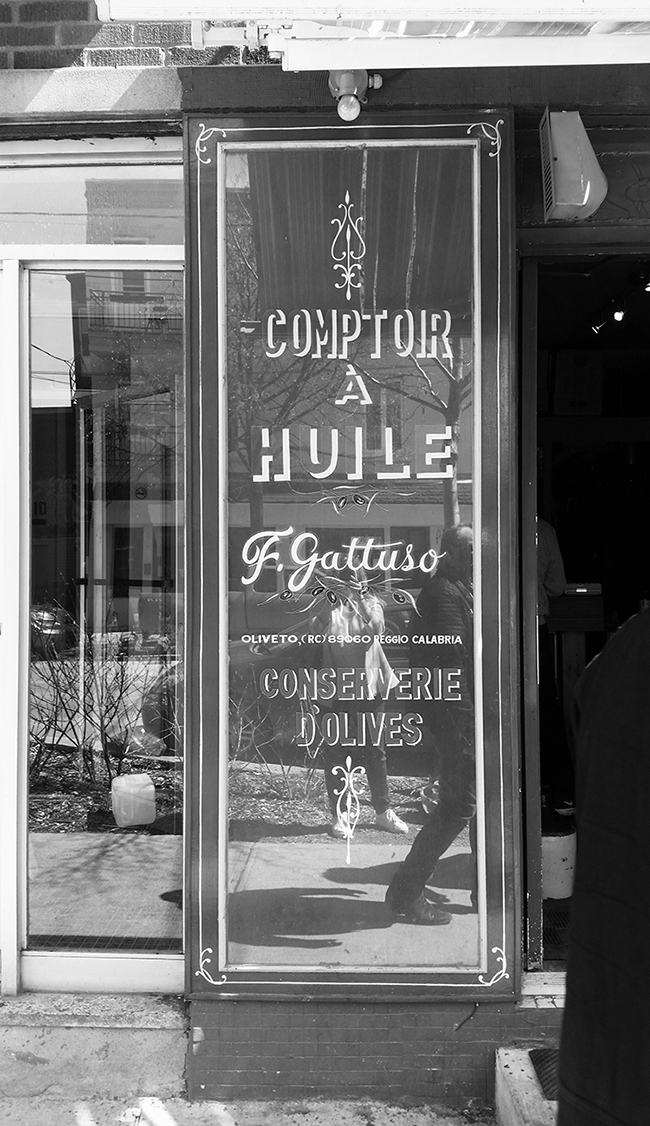 COMPTOIR
À
HUILE
F. Gattuso
OLIVETO, (RC) 89060 REGGIO CALABRIA
CONSERVERIE
D'OLIVES